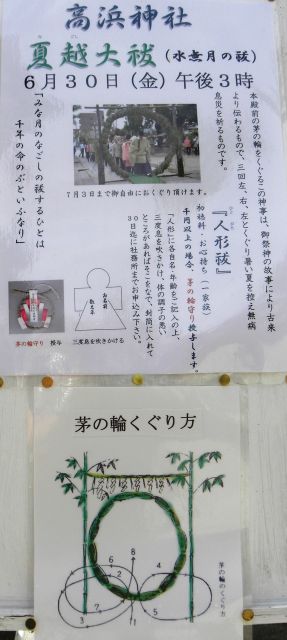 高浜神社
な ごし
夏越大祓(水無月の祓)
6月30日(金)午後3時
本殿前の茅の輪をくぐるこの神事は、御祭神の故事により古来
より伝わるもので、三回左、右、左とくぐり暑い夏を控え無病
息災を祈るものです。
7月3日まで御自由におくぐり頂けます。
「みな月のなごしの祓するひとは
千年の命のぶといふなり」
ひと がた
『人形祓』
初穂料・お心持ち(一家族)
千円以上の場合、茅の輪守り授与します。
「人形」に各自名・年齢をご記入の上、
三度息を吹きかけ、体の調子の悪い
ところがあればそこをなで、封筒に入れて
30日迄に社務所までお申込み下さい。
お名前
数え年
三度息を吹きかける
茅の輪守り 授与
茅の輪くぐり方
8
6
4
2
7
5
3
1
茅の輪のくぐり方